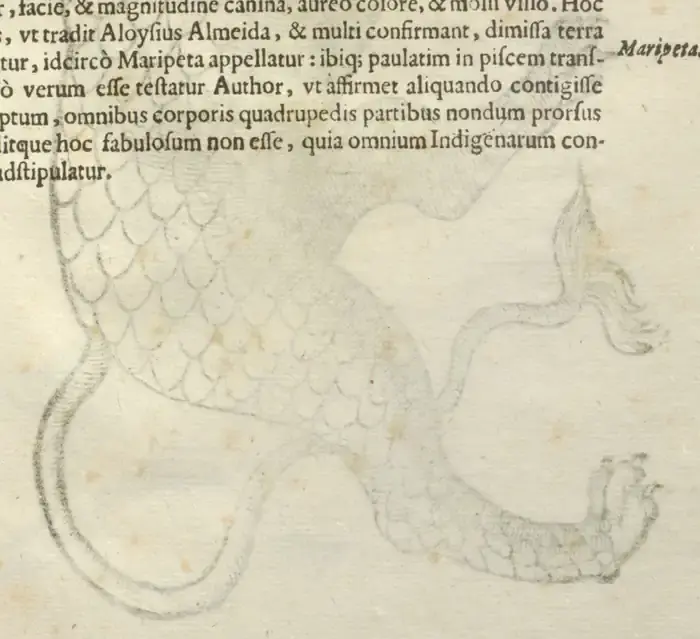 , facie, & magnitudine canina, aureo colore, & molli villo. Hoc
, vt tradit Aloyſius Almeida, & multi confirmant, dimiſſa terra
tur, idcircò Maripeta appellatur: ibiq; paulatim in piſcem tranſ-
Maripeta.
ò verum eſſe teſtatur Author, vt affirmet aliquando contigiſſe
ptum, omnibus corporis quadrupedis partibus nondum prorſus
itque hoc fabuloſum non eſſe, quia omnium Indigenarum con-
dſtipulatur.